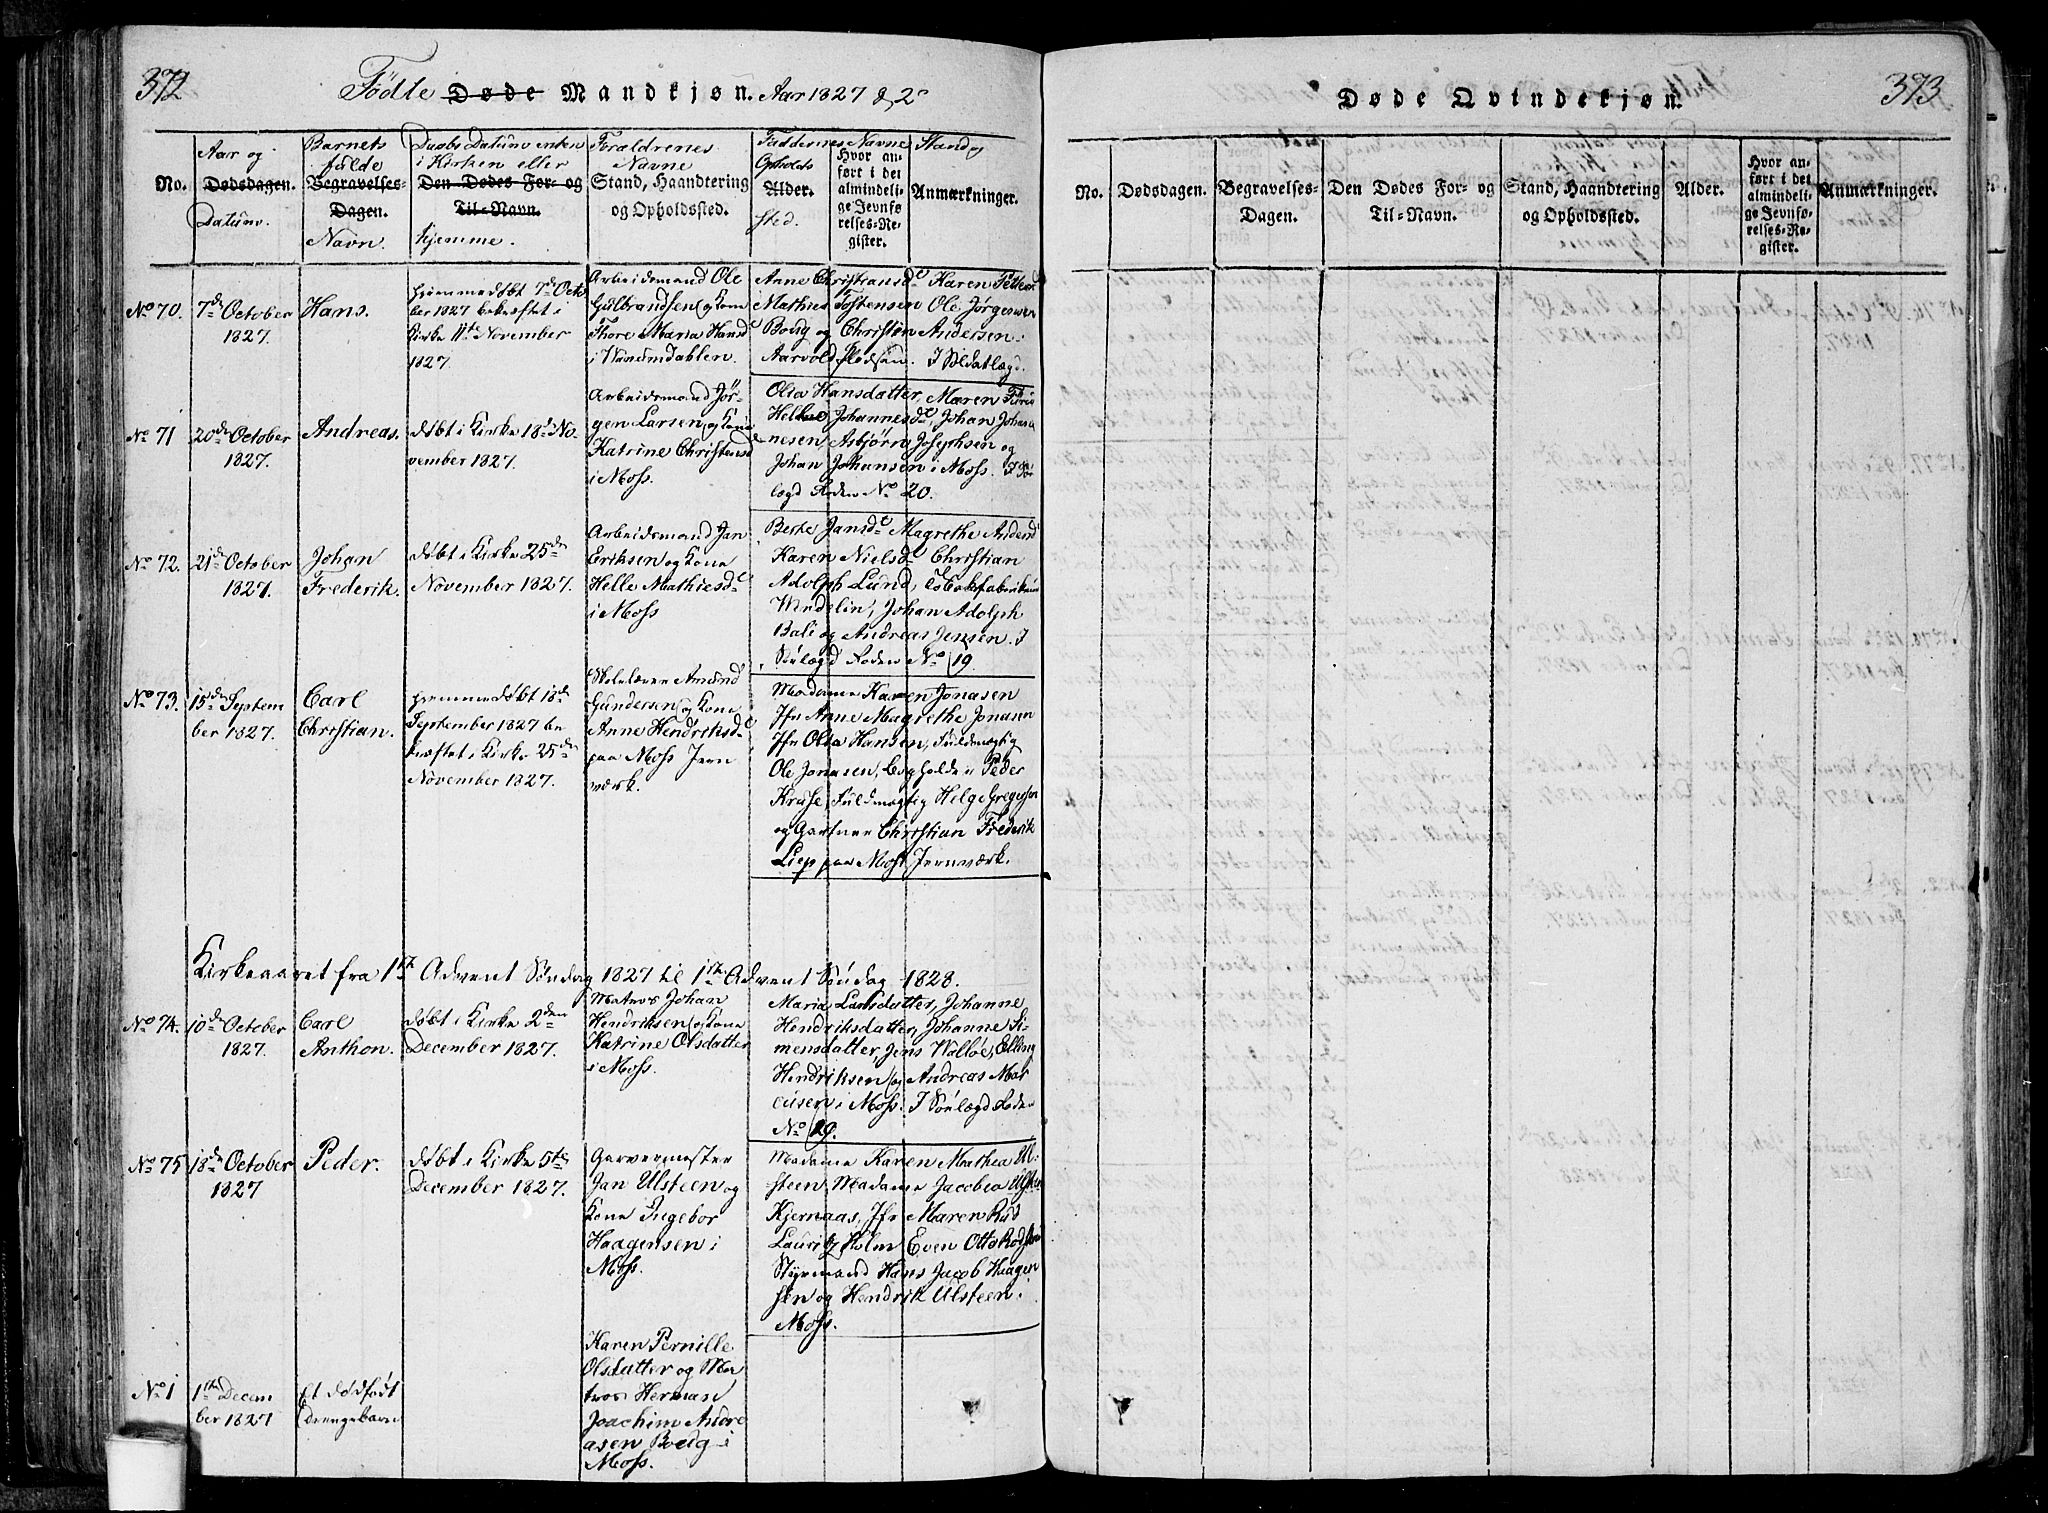 372
Födte Døde Mandkjøn. Aar 1827
No.
Aar og
Dødsdagen.
Datum.
Barnets
fulde
Begravelses-
Dagen.
Navn.
Daabs Datum enten
i Kirken eller
Den Dødes For- og
Til-Navn.
hjemme.
Foraldrenes
Navne
Stand, Haandtering
og Opholdssted.
Faddernes Navne Stand og
Opholds
Alder.
sted.
Hvor an-
ført i det
almindeli-
ge Jevnfø-
relses-Re-
gister.
Anmærkninger.
No 70.
7de October
1827.
Hans.
hjemmedøbt 7de Octo
ber 1827 bekræftet i
Kirke 11te November
1827.
Arbeidsmand Ole
Gulbrandsen og Kone
Thore Maria Hansd
i Vandsmdahlen.
Anne Christiansd Karen Petters
Mathies Tostensen Ole Jørgensen
Boug og Christen Andersen
Aarvold Flodsan. I Soldatlægd.
No 71
20de October
1827.
Andreas.
døbt i Kirke 18de No
vember 1827.
Arbeidsmand Jör-
gen Larsen og Kone
Katrine Christensd
i Moss.
Olea Hansdatter, Maren
Helene Johannesd, Johan Johan
nesen, Asbjørn Josephsen og
Johan Johansen i Moss. I Sø
lægd Roden No 20.
No 72.
21de October
1827.
Johan
Frederik.
døbt i Kirke 25de
November 1827.
Arbeidsmand Jan
Eriksen og Kone
Helle Mathiesd
i Moss
Berte Jansd Magrethe Andersd
Karen Nielsd Christian
Adolph Lund, Tobaksfabrikeur
Wedelin, Johan Adolph
Bali og Andreas Jensen. I
Søelægd Roden No 19
No 73.
15de Septem
ber 1827.
Carl
Christian.
hjemmedøbt 18de
September 1827 be
kræftet i Kirke 25de
November 1827.
Skolelærer Amund
Gundersen og Kone
Anne Hendriksd
paa Moss Jern
værk.
Madame Karen Jonasen
Jfr Anne Magrethe Jonasen
Jfr Olea Hansen, Fuldmægtig
Ole Jonasen, Bogholder Peder
Kruse, Fuldmægtig Helge Gregersen
og Gartner Christian Frederik
Liep paa Moss Jernværk.
Kirkeaaret fra 1ste Advent Søndag 1827 til 1ste Advent Søndag 1828.
No 74.
10de October
1827.
Carl
Anthon.
døbt i Kirke 2den
December 1827.
Matros Johan
Hendriksen og Kone
Katrine Olsdatter
i Moss.
Maria Larsdatter, Johanne
Hendriksdatter, Johanne Si-
mensdatter, Jens Walløe, Elling
Hendriksen og Andreas Mar
cusen i Moss. I Søelægd Roden
No 19.
No 75
18de October
1827
Peder.
døbt i Kirke 5te
December 1827.
Garvermester
Jan Ulsteen og
Kone Ingebor
Haagensen i
Moss.
Madame Karen Mathea Ul-
steen, Madame Jacobea Ulsteen
Kjernaas, Jfr Maren Rud
Lauritz Holm Even Otto
Styrmand Hans Jacob Haagen
sen og Hendrik Ulsteen i
Moss.
No 1
1ste Decem
ber 1827
Et dödfödt
drengebarn
Karen Pernille
Olsdatter og Ma
tros Herman
Joachim Andre
asen Boug i
Moss.
373
Døde Qvindekjøn.
No.
Dødsdagen.
Begravelses-
Dagen.
Den Dødes For- og
Til-Navn.
Stand, Haandtering
og Opholdssted.
Alder.
Hvor an-
ført i det
almindeli-
ge Jevnfø-
relses-Re-
gister.
Anmærkninger.